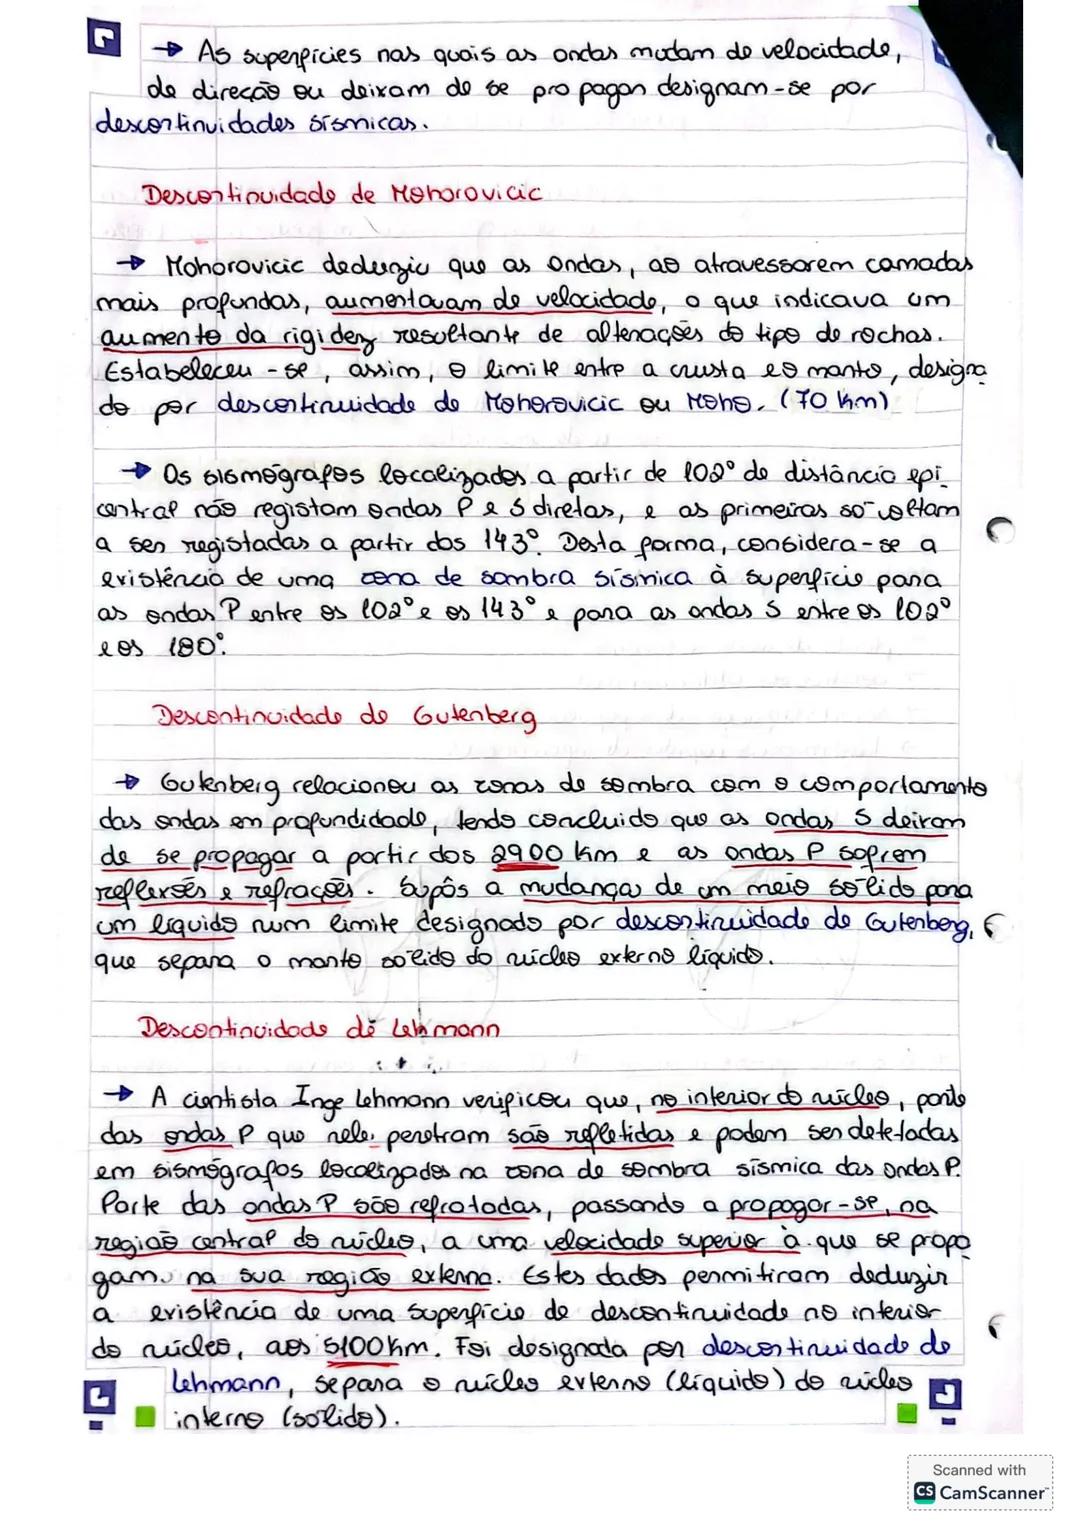 → As superfícies nas quais as ondas mudam de velocidade,
de direção ou deixam de se propagar designam-se por
descontinuidades sísmicas.
Descontinuidade de Mohorovicic
→ Mohorovicic deduziu que as ondas, ao atravessarem camadas
mais profundas, aumentavam de velocidade, o que indicava um
aumento da rigidez resultante de alterações do tipo de rochas.
Estabeleceu-se, assim, o limite entre a crusta e o manto, designa
do por descontinuidade de Mohorovicic ou Moho. (70 km)
→ Os sismógrafos localizados a partir de 102° de distância epi
central não registam ondas P e S diretas, e as primeiras só voltam
a ser registadas a partir dos 143°. Desta forma, considera-se a
existência de uma zona de sombra sísmica à superfície para
as ondas P entre os 102° e os 143° e para as ondas S entre os 102°
e os 180°.
Descontinuidade de Gutenberg
→ Gutenberg relacionou as zonas de sombra com o comportamento
das ondas em profundidade, tendo concluído que as ondas S deixam
de se propagar a partir dos 2900 km e as ondas P sofrem
reflexões e refrações. Supôs a mudança de um meio sólido para
um líquido num limite designado por descontinuidade de Gutenberg,
que separa o manto sólido do núcleo externo líquido.
Descontinuidade de Lehmann
→ A cientista Inge Lehmann verificou que, no interior do núcleo, parte
das ondas P que nele penetram são refletidas e podem ser detetadas
em sismógrafos localizados na zona de sombra sísmica das ondas P.
Parte das ondas P são refratadas, passando a propagar-se, na
região central do núcleo, a uma velocidade superior à que se propa
gam na sua região externa. Estes dados permitiram deduzir
a existência de uma superfície de descontinuidade no interior
do núcleo, aos 5100 km. Foi designada por descontinuidade de
Lehmann, separa o núcleo externo (líquido) do núcleo
interno (sólido).
Scanned with
CS CamScanner